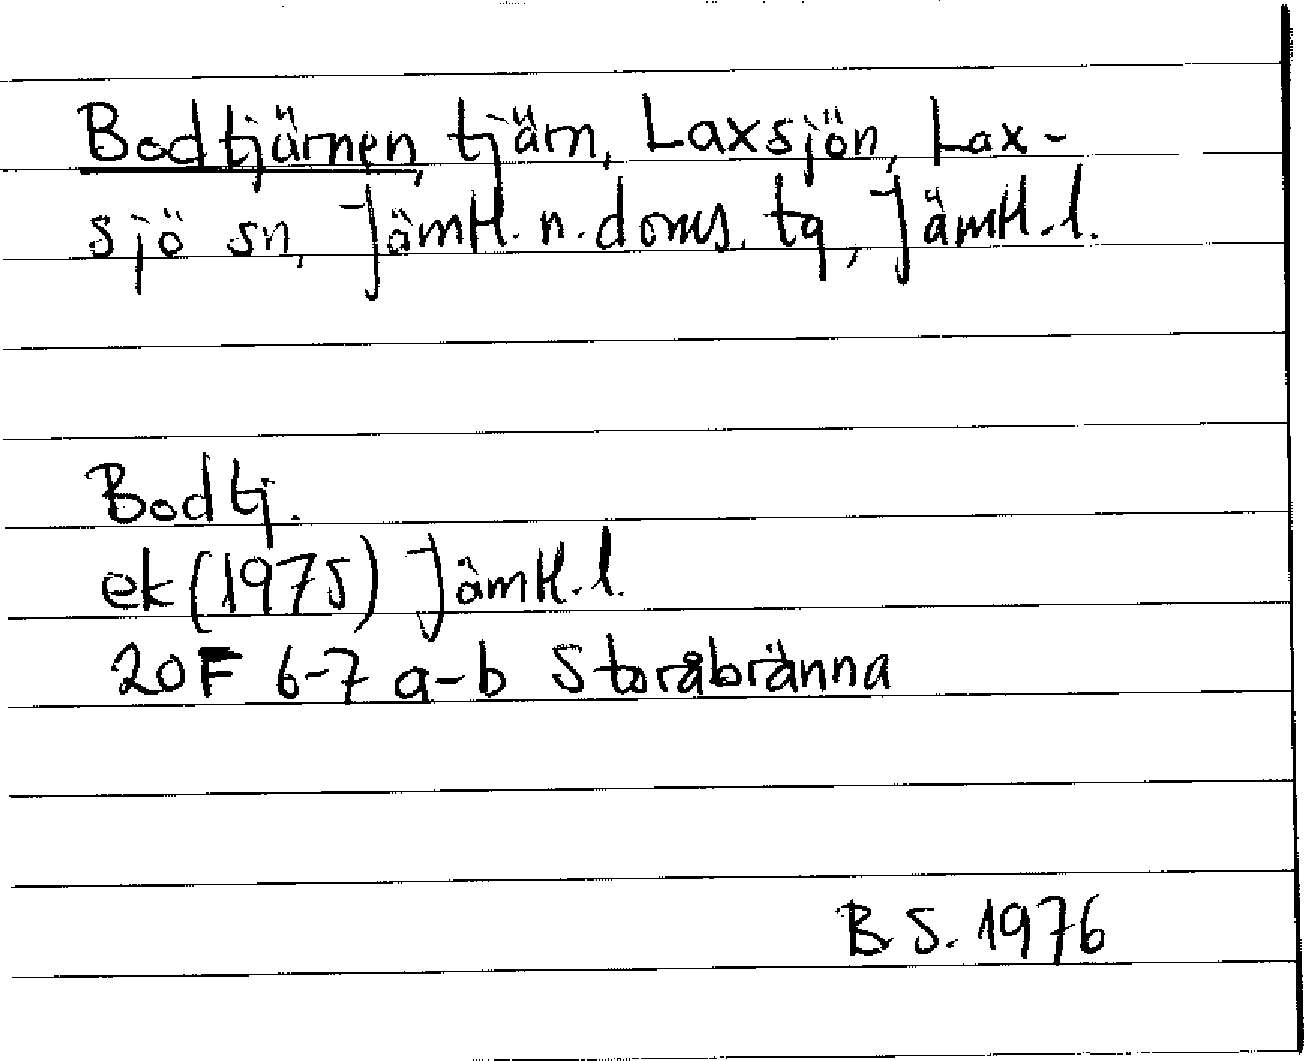 Bodtjärnen, tjärn, Laxsjön, Lax-
sjö sn, Jämtl. n. doms. tg, Jämtl. l.
Bodtj.
ek (1975) Jämtl. l.
20F 6-7 a-b Storåbränna
B.S. 1976